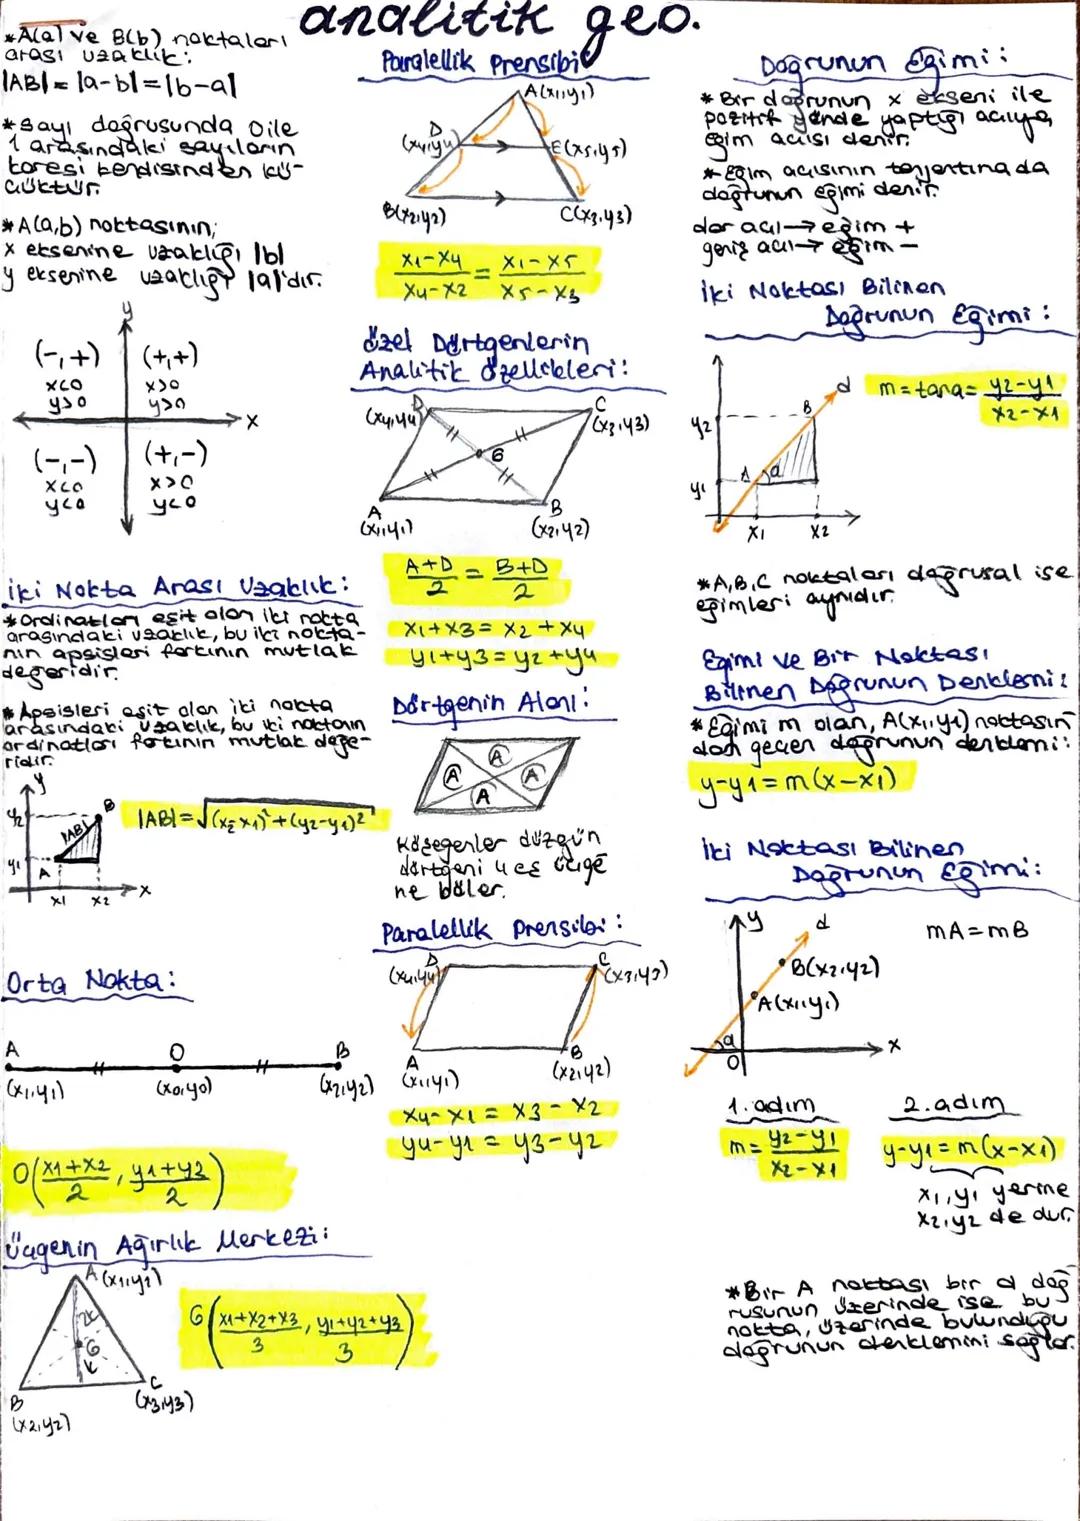 analitik geo.
*A(a) ve B(b) noktaları
arası uzaklık:
|AB| = |a-b|=|b-a|
*Sayı doğrusunda 0 ile
1 arasındaki sayıların
karesi kendisinden kü-
çüktür.
*A(a,b) noktasının;
x eksenine uzaklığı |b|
y eksenine uzaklığı |a|'dır.
y
(-,+)
x<0
y>0
(+,+)
x>0
y>0
x
(-,-)
x<0
y<0
(+,-)
x>0
y<0
İki Nokta Arası Uzaklık:
*Ordinatları eşit olan iki nokta
arasındaki uzaklık, bu iki nokta-
nın apsisleri farkının mutlak
değeridir.
*Apsisleri eşit olan iki nokta
arasındaki uzaklık, bu iki noktanın
ordinatları farkının mutlak değe-
ridir.
y
y2
B
|AB|
y1
A
x1 x2
x
|AB|=√(x2-x1)²+(y2-y1)²
Orta Nokta:
A O B
(x1,y1) (x0,y0) (x2,y2)
O(x1+x2/2, y1+y2/2)
Üçgenin Ağırlık Merkezi:
A(x1,y1)
2k
G
k
B
(x2,y2)
C
(x3,y3)
G(x1+x2+x3/3, y1+y2+y3/3)
Paralellik Prensibi
A(x1,y1)
D
(x4,y4)
E(x5,y5)
B(x2,y2)
C(x3,y3)
x1-x4/x4-x2 = x1-x5/x5-x3
Özel Dörtgenlerin
Analitik Özellikleri:
D
(x4,y4)
C
(x3,y3)
G
A
(x1,y1)
B
(x2,y2)
A+D/2 = B+D/2
x1+x3=x2+x4
y1+y3=y2+y4
Dörtgenin Alanı:
A
A A
A
Köşegenler düzgün
dörtgeni 4 eş üçge
ne böler.
Paralellik Prensibi:
D
(x4,y4)
C
(x3,y3)
A
(x1,y1)
B
(x2,y2)
x4-x1 = x3-x2
y4-y1 = y3-y2
Doğrunun Eğimi:
*Bir doğrunun x ekseni ile
pozitif yönde yaptığı açıya
eğim açısı denir.
*Eğim açısının tanjantına da
doğrunun eğimi denir.
dar açı→eğim +
geniş açı→eğim -
İki Noktası Bilinen
Doğrunun Eğimi:
d
y2
B
A
a
y1
x1
x2
m=tana= y2-y1/x2-x1
*A,B,C noktaları doğrusal ise
eğimleri aynıdır.
Eğimi ve Bir Noktası
Bilinen Doğrunun Denklemi:
*Eğimi m olan, A(x1,y1) noktasın
dan geçen doğrunun denklemi:
y-y1=m(x-x1)
İki Noktası Bilinen
Doğrunun Eğimi:
y
d
mA=mB
B(x2,y2)
A(x1,y1)
a
O
x
1. adım
m= y2-y1/x2-x1
2. adım
y-y1=m(x-x1)
x1,y1 yerine
x2,y2 de dur.
*Bir A noktası bir d doğ
rusunun üzerinde ise bu
nokta, üzerinde bulunduğu
doğrunun denklemini sağlar.